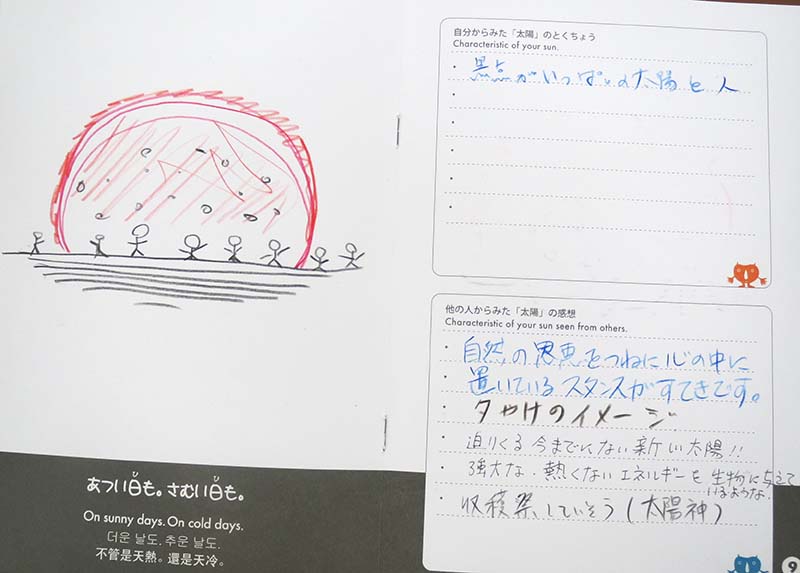 あつい日も。さむい日も。
On sunny days. On cold days.
더운 날도. 추운 날도.
不管是天熱。還是天冷。
自分からみた「太陽」のとくちょう
Characteristic of your sun.
黒点がいっぱいの太陽と人
他の人からみた「太陽」の感想
Characteristic of your sun seen from others.
自然の恩恵をつねに心の中に
置いているスタンスがすてきです。
夕やけのイメージ
迫りくる今までにない新しい太陽!!
強大な、熱くないエネルギーを生物に与えて
いるような.
収穫祭していそう(太陽神)
9